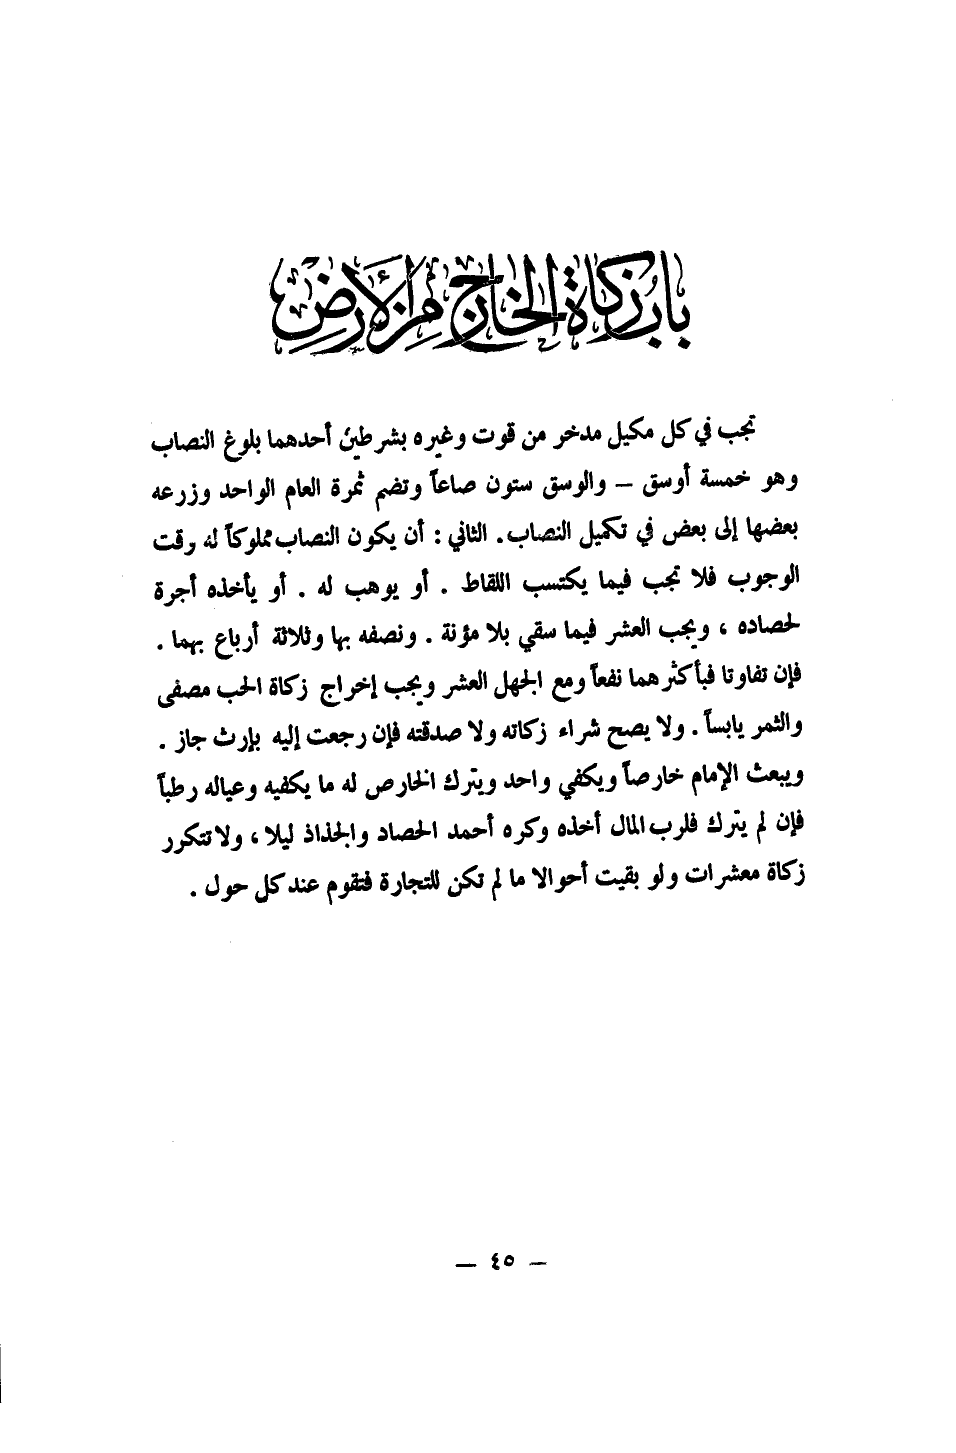 باب زكاة الخارج من الأرض
تجب في كل مكيل مدخر من قوت وغيره بشرطين أحدهما بلوغ النصاب
وهو خمسة أوسق — والوسق ستون صاعاً وتضم ثمرة العام الواحد وزرعه
بعضها إلى بعض في تكميل النصاب . الثاني : أن يكون النصاب مملوكاً له وقت
الوجوب فلا تجب فيما يكتسب اللقاط . أو يوهب له . أو يأخذه أجرة
لحصاده ، ويجب العشر فيما سقي بلا مؤنة . ونصفه بها وثلاثة أرباع بهما .
فإن تفاوتا فبأكثرهما نفعاً ومع الجهل العشر ويجب إخراج زكاة الحب مصفى
والثمر يابساً . ولا يصح شراء زكاته ولا صدقته فإن رجعت إليه بإرث جاز .
ويبعث الإمام خارصاً ويكفي واحد ويترك الخارص له ما يكفيه وعياله رطباً
فإن لم يترك فلرب المال أخذه وكره أحمد الحصاد والجذاذ ليلا ، ولا تتكرر
زكاة معشرات ولو بقيت أحوالا ما لم تكن للتجارة فتقوم عند كل حول .
— ٤٥ —